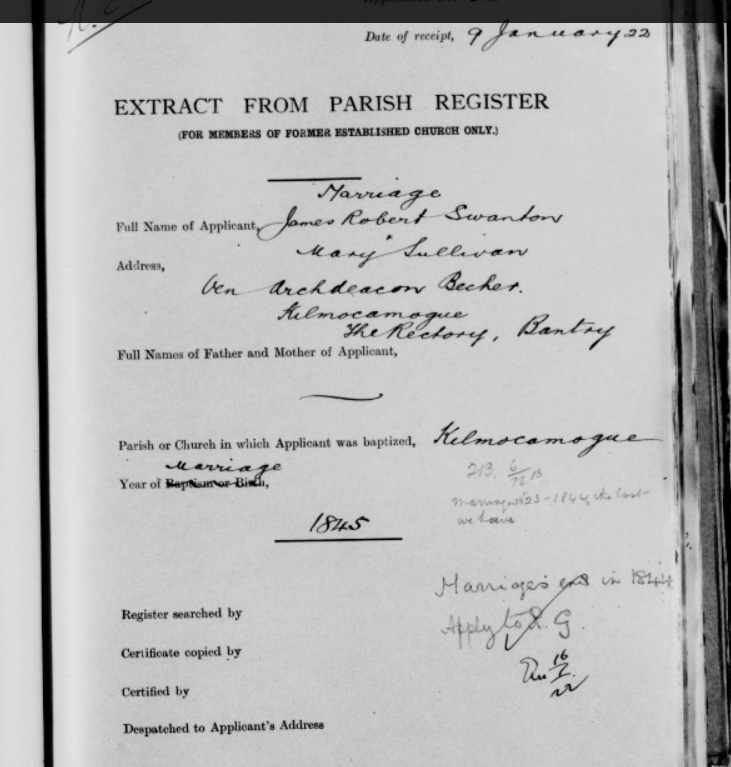 Date of receipt, 9 January 22
EXTRACT FROM PARISH REGISTER
(FOR MEMBERS OF FORMER ESTABLISHED CHURCH ONLY.)
Marriage
Full Name of Applicant, James Robert Swanton
Mary Sullivan
Address,
Ven Archdeacon Becher.
Kilmocamogue
The Rectory, Bantry
Full Names of Father and Mother of Applicant,
Parish or Church in which Applicant was baptized, Kilmocamogue
Marriage
Year of Baptism or Birth,
1845
Marriages end in 1844
Register searched by
Apply to R. G.
Certificate copied by
Certified by
Despatched to Applicant's Address